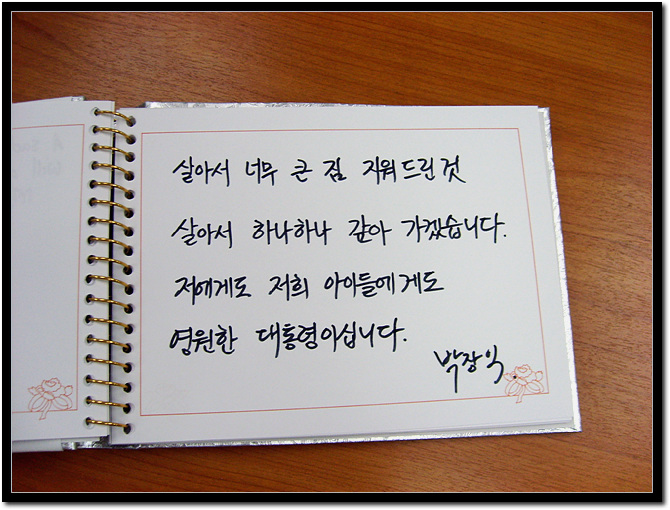 살아서 너무 큰 짐 지워드린 것
살아서 하나하나 갚아 가겠습니다.
저에게도 저희 아이들에게도
영원한 대통령이십니다.
박장익